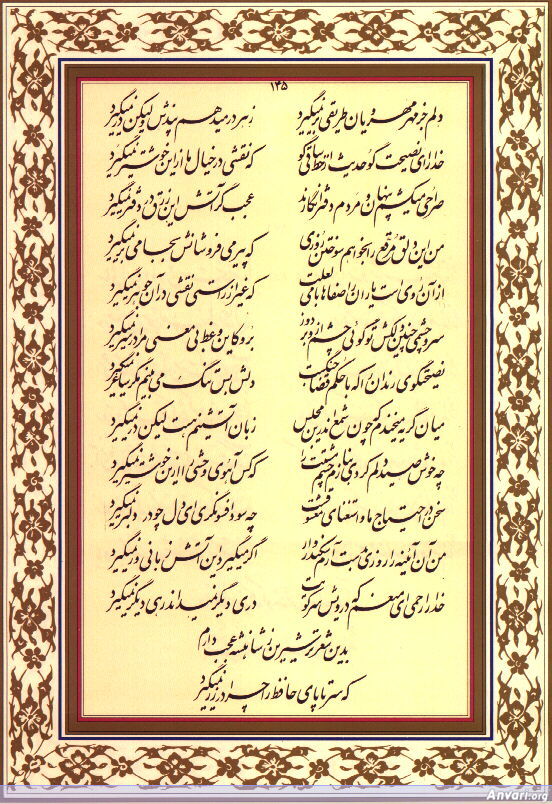 ۱۴۵
دلم جز مهر مهرویان طریقی برنمیگیرد زهر در میدهم پندش ولیکن درنمیگیرد
خدا را ای نصیحت گو حدیث از خط ساقی گو که نقشی در خیال ما ازین خوشتر نمیگیرد
صراحی میکشم پنهان و مردم دفتر انگارند عجب گر آتش این زرق در دفتر نمیگیرد
من این دلق مرقع را بخواهم سوختن روزی که پیر می فروشانش بجامی برنمیگیرد
از آن روی است یاران را صفاها با می لعلت که غیر از راستی نقشی در آن جوهر نمیگیرد
سر و چشمی چنین دلکش تو گوئی چشم ازو بردوز برو کاین وعظ بی معنی مرا در سر نمیگیرد
نصیحتگوی رندان را که با حکم قضا جنگست دلش بس تنگ می بینم مگر ساغر نمیگیرد
میان گریه میخندم که چون شمع اندرین مجلس زبان آتشینم هست لیکن درنمیگیرد
چه خوش صید دلم کردی بنازم چشم مستت را که کس آهوی وحشی را ازین خوشتر نمیگیرد
سخن در احتیاج ما و استغنای معشوقست چه سود افسونگری ای دل چو در دلبر نمیگیرد
من آن آئینه را روزی بدست آرم سکندروار اگر میگیرد این آتش زمانی ور نمیگیرد
خدا را رحمی ای منعم که درویش سر کویت دری دیگر نمیداند رهی دیگر نمیگیرد
بدین شعر تر شیرین ز شاهنشه عجب دارم
که سر تا پای حافظ را چرا در زر نمیگیرد
Anvari.org